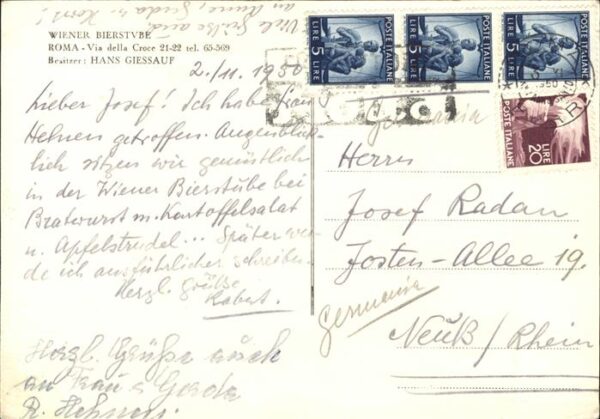 Viele Grüße auch
an Anne, Gerda u. Horst!
WIENER BIERSTVBE
ROMA - Via della Croce 21-22 tel. 65-569
Besitzer: HANS GIESSAUF
2./11. 1950
Lieber Josef! Ich habe
Hehnen getroffen. Augenblick-
lich sitzen wir gemütlich
in der Wiener Bierstube bei
Bratwurst m. Kartoffelsalat
u. Apfelstrudel... Später wer-
de ich ausführlicher schreiben.
Herzl. Grüße
Robert.
Herzl. Grüße auch
an Frau u Gerda
R. Hehnen.
POSTE ITALIANE
LIRE 5
5 LIRE
POSTE ITALIANE
LIRE 5
5 LIRE
POSTE ITALIANE
LIRE 5
5 LIRE
POSTE ITALIANE
LIRE 20
Germania
Herrn
Josef Radan
Josten-Allee 19.
Neuß / Rhein
Germania